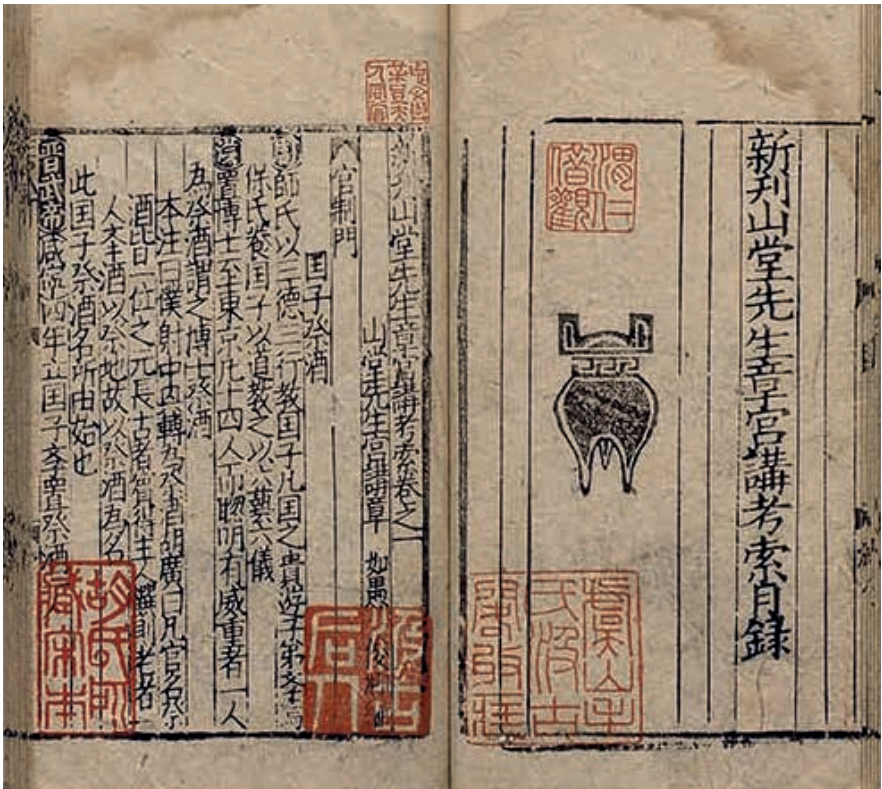 新刊山堂先生章宮講考索目錄
渭仁借觀
虞山毛氏汲古閣收藏
新刊山堂先生章宮講考索卷之一
山堂先生宮講章 如愚 俊卿
官制門
国子祭酒
周師氏以三德三行教国子凡国之貴遊子弟斈焉
保氏養国子以道教之以六藝六儀
漢置博士至東京凢十四人而聦明有威重者一人
為祭酒謂之博士祭酒
本注曰僕射中丞轉為祭酒胡廣曰凡官名祭
酒皆一位之元長古者賔得主人饌則老者一
人本酒以祭地故以祭酒為名
此国子祭酒名所由始也
晋武帝咸寧四年立国子斈置祭酒一人